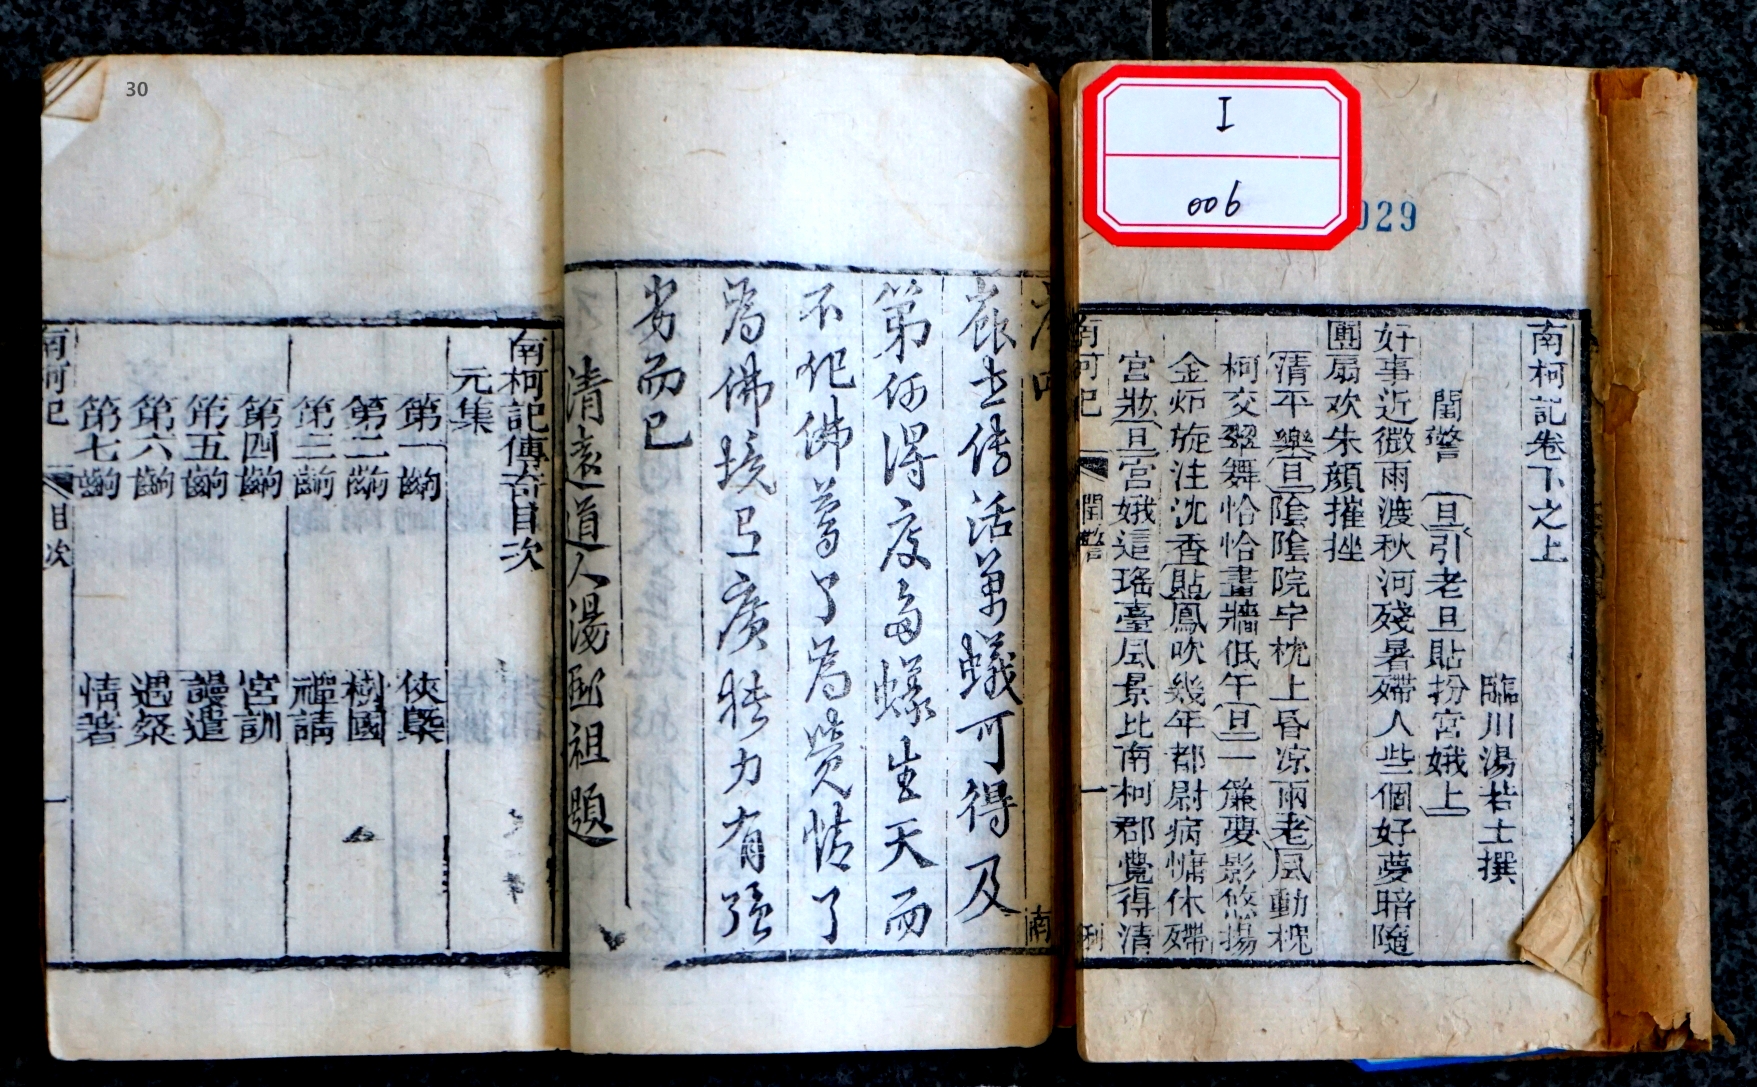 30
I
006
029
南柯記卷下之上
臨川湯若士撰
閨警 旦引老旦貼扮宮娥上
好事近微雨渡秋河殘暑殢人些個好夢暗隨
團扇欢朱顔摧挫
清平樂旦陰陰院宇枕上昏凉雨老風動槐
柯交翠舞恰恰畫牆低午旦一簾夢影悠揚
金炉旋注沈香貼鳳吹幾年都尉病慵休殢
宮妝旦宮娥這瑤臺風景比南柯郡覺得清
南柯記 閨警 一
衆生傳活萬蟻可得及
第何得度多蟻生天而
不作佛夢了為覺情了
為佛境有廣狹力有強
劣而已
清遠道人湯顯祖題
南柯記傳奇目次
元集
第一齣 俠槩
第二齣 樹國
第三齣 禪請
第四齣 宮訓
第五齣 謾遣
第六齣 遇粲
第七齣 情著
南柯記 目次 一